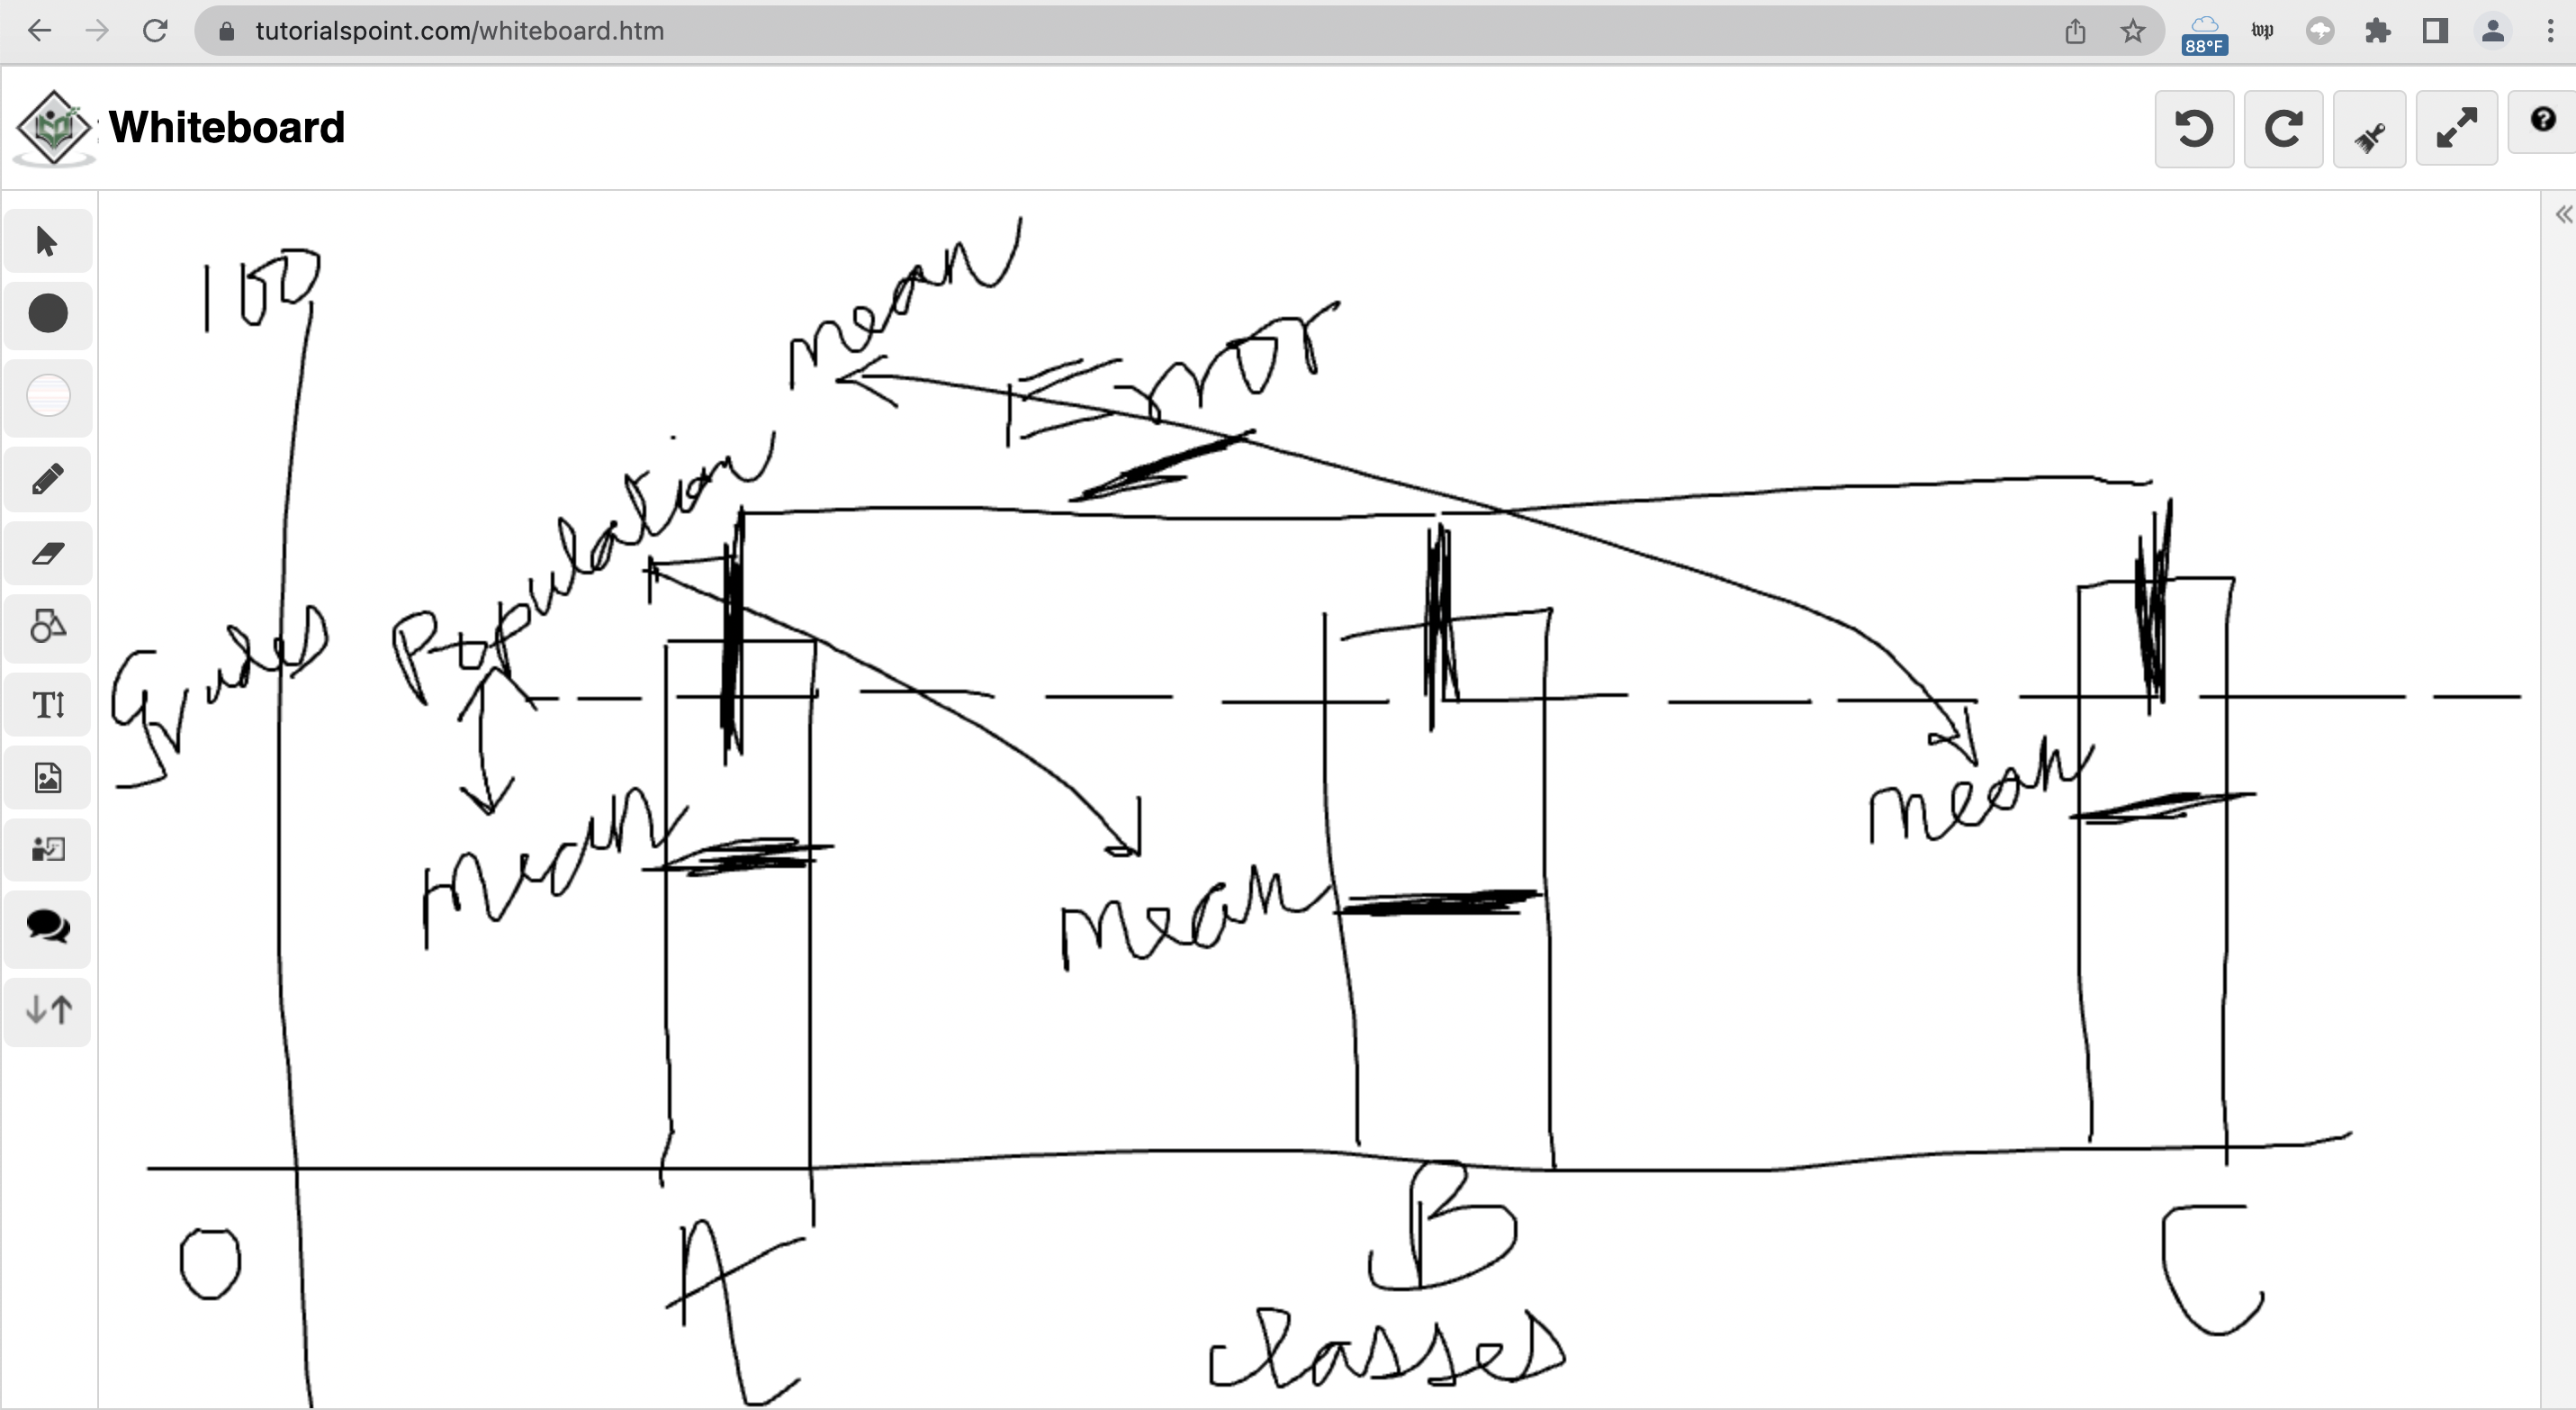 tutorialspoint.com/whiteboard.htm
88°F
wp
Whiteboard
100
mean
Error
Population
Grades
mean
mean
mean
0
A
B
C
classes